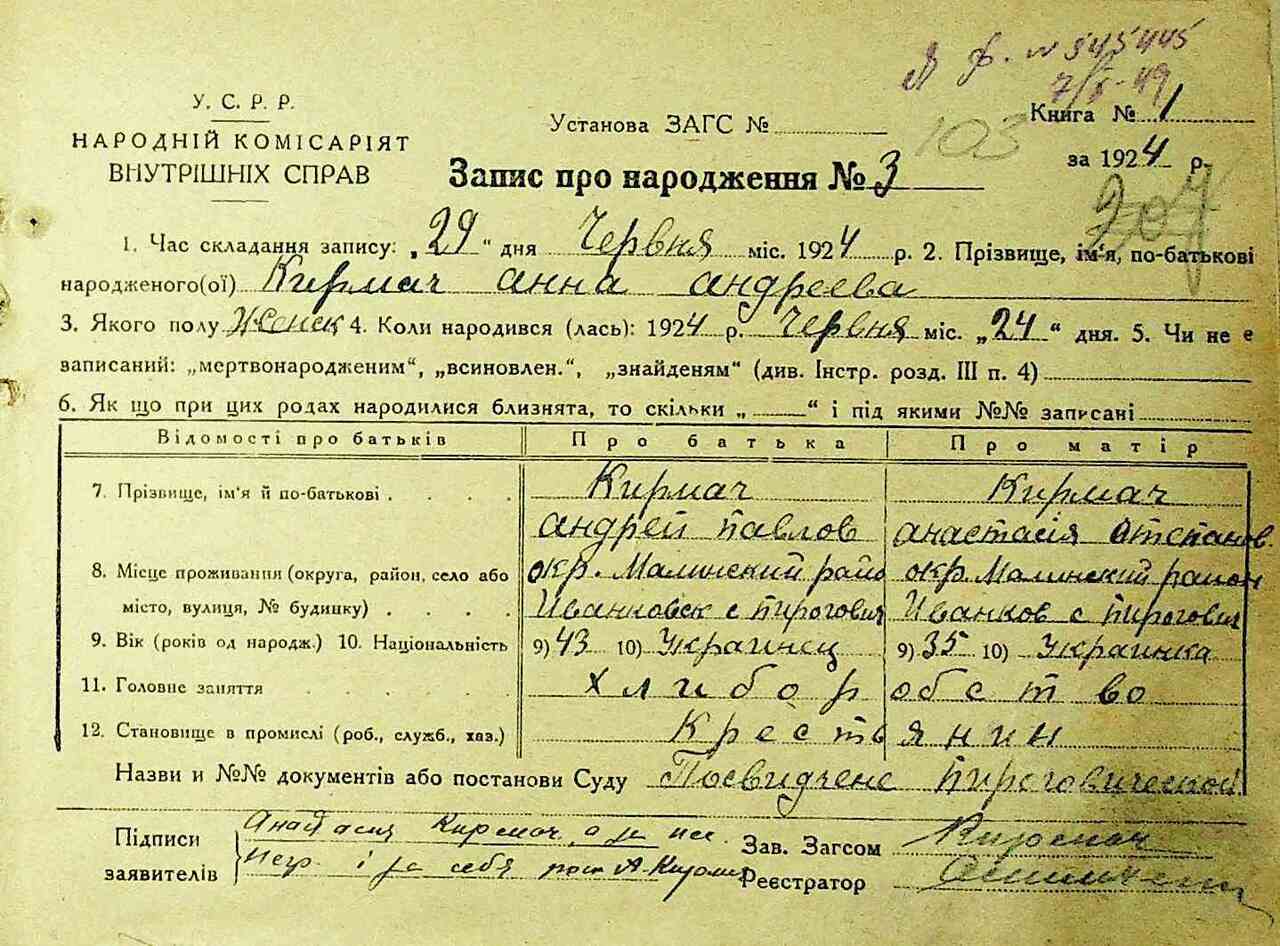 Я ф. № 545445
У. С. Р. Р.
НАРОДНІЙ КОМІСАРІЯТ
ВНУТРІШНІХ СПРАВ
Установа ЗАГС №
103
Книга № 1
за 1924 р.
207
Запис про народження № 3
1. Час складання запису: „29“ дня Червня міс. 1924 р. 2. Прізвище, ім'я, по-батькові
народженого(ої) Кирмач анна андреева
3. Якого полу Женск 4. Коли народився (лась): 1924 р. Червня міс. „24“ дня. 5. Чи не є
записаний: „мертвонародженим“, „всиновлен.“, „знайденям“ (див. Інстр. розд. III п. 4)
6. Як що при цих родах народилися близнята, то скільки „ “ і під якими №№ записані
Відомості про батьків Про батька Про матір
7. Прізвище, ім'я й по-батькові . . . . Кирмач Кирмач
андрей павлов анастасія Степанов
8. Місце проживання (округа, район, село або окр. Малинский райо окр. Малинский район
місто, вулиця, № будинку) . . . . Иванковск с пироговичи Иванков с пирогович
9. Вік (років од народж.) 10. Національність 9) 43 10) Украинец 9) 35 10) Украинка
11. Головне заняття . . . . . хлиборобство
12. Становище в промислі (роб., служб., хаз.) Крестьянин
Назви и №№ документів або постанови Суду Посвидчене пироговической
Підписи Анастасия Кирмач, а за нее
заявителів негр. і за себя рост А. Кирмач
Зав. Загсом Кирмач
Реєстратор